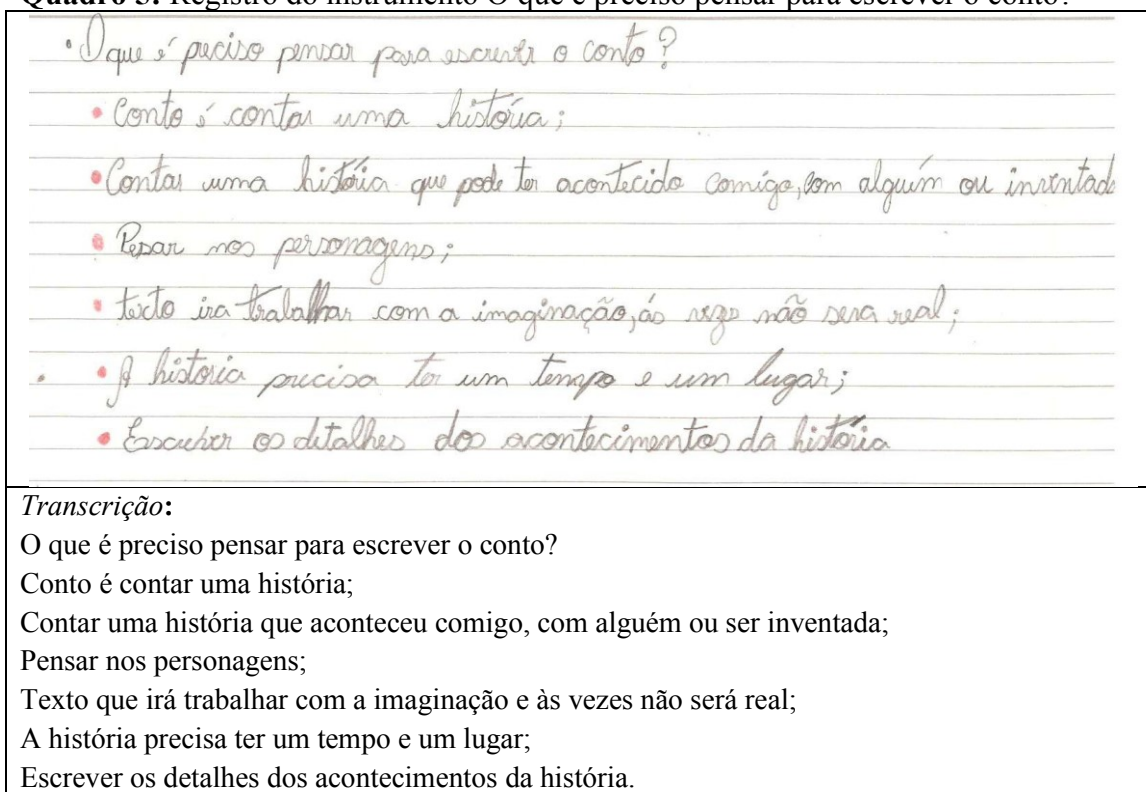 Quadro 3: Registro do instrumento O que é preciso pensar para escrever o conto?
• O que é preciso pensar para escrever o conto?
• Conto é contar uma história;
• Contar uma história que pode ter acontecido comigo, com alguém ou inventad
• Pesar nos personagens;
• texto ira trabalhar com a imaginação, ás vezes não sera real;
• A historia precisa ter um tempo e um lugar;
• Escrever os detalhes dos acontecimentos da história
Transcrição:
O que é preciso pensar para escrever o conto?
Conto é contar uma história;
Contar uma história que aconteceu comigo, com alguém ou ser inventada;
Pensar nos personagens;
Texto que irá trabalhar com a imaginação e às vezes não será real;
A história precisa ter um tempo e um lugar;
Escrever os detalhes dos acontecimentos da história.